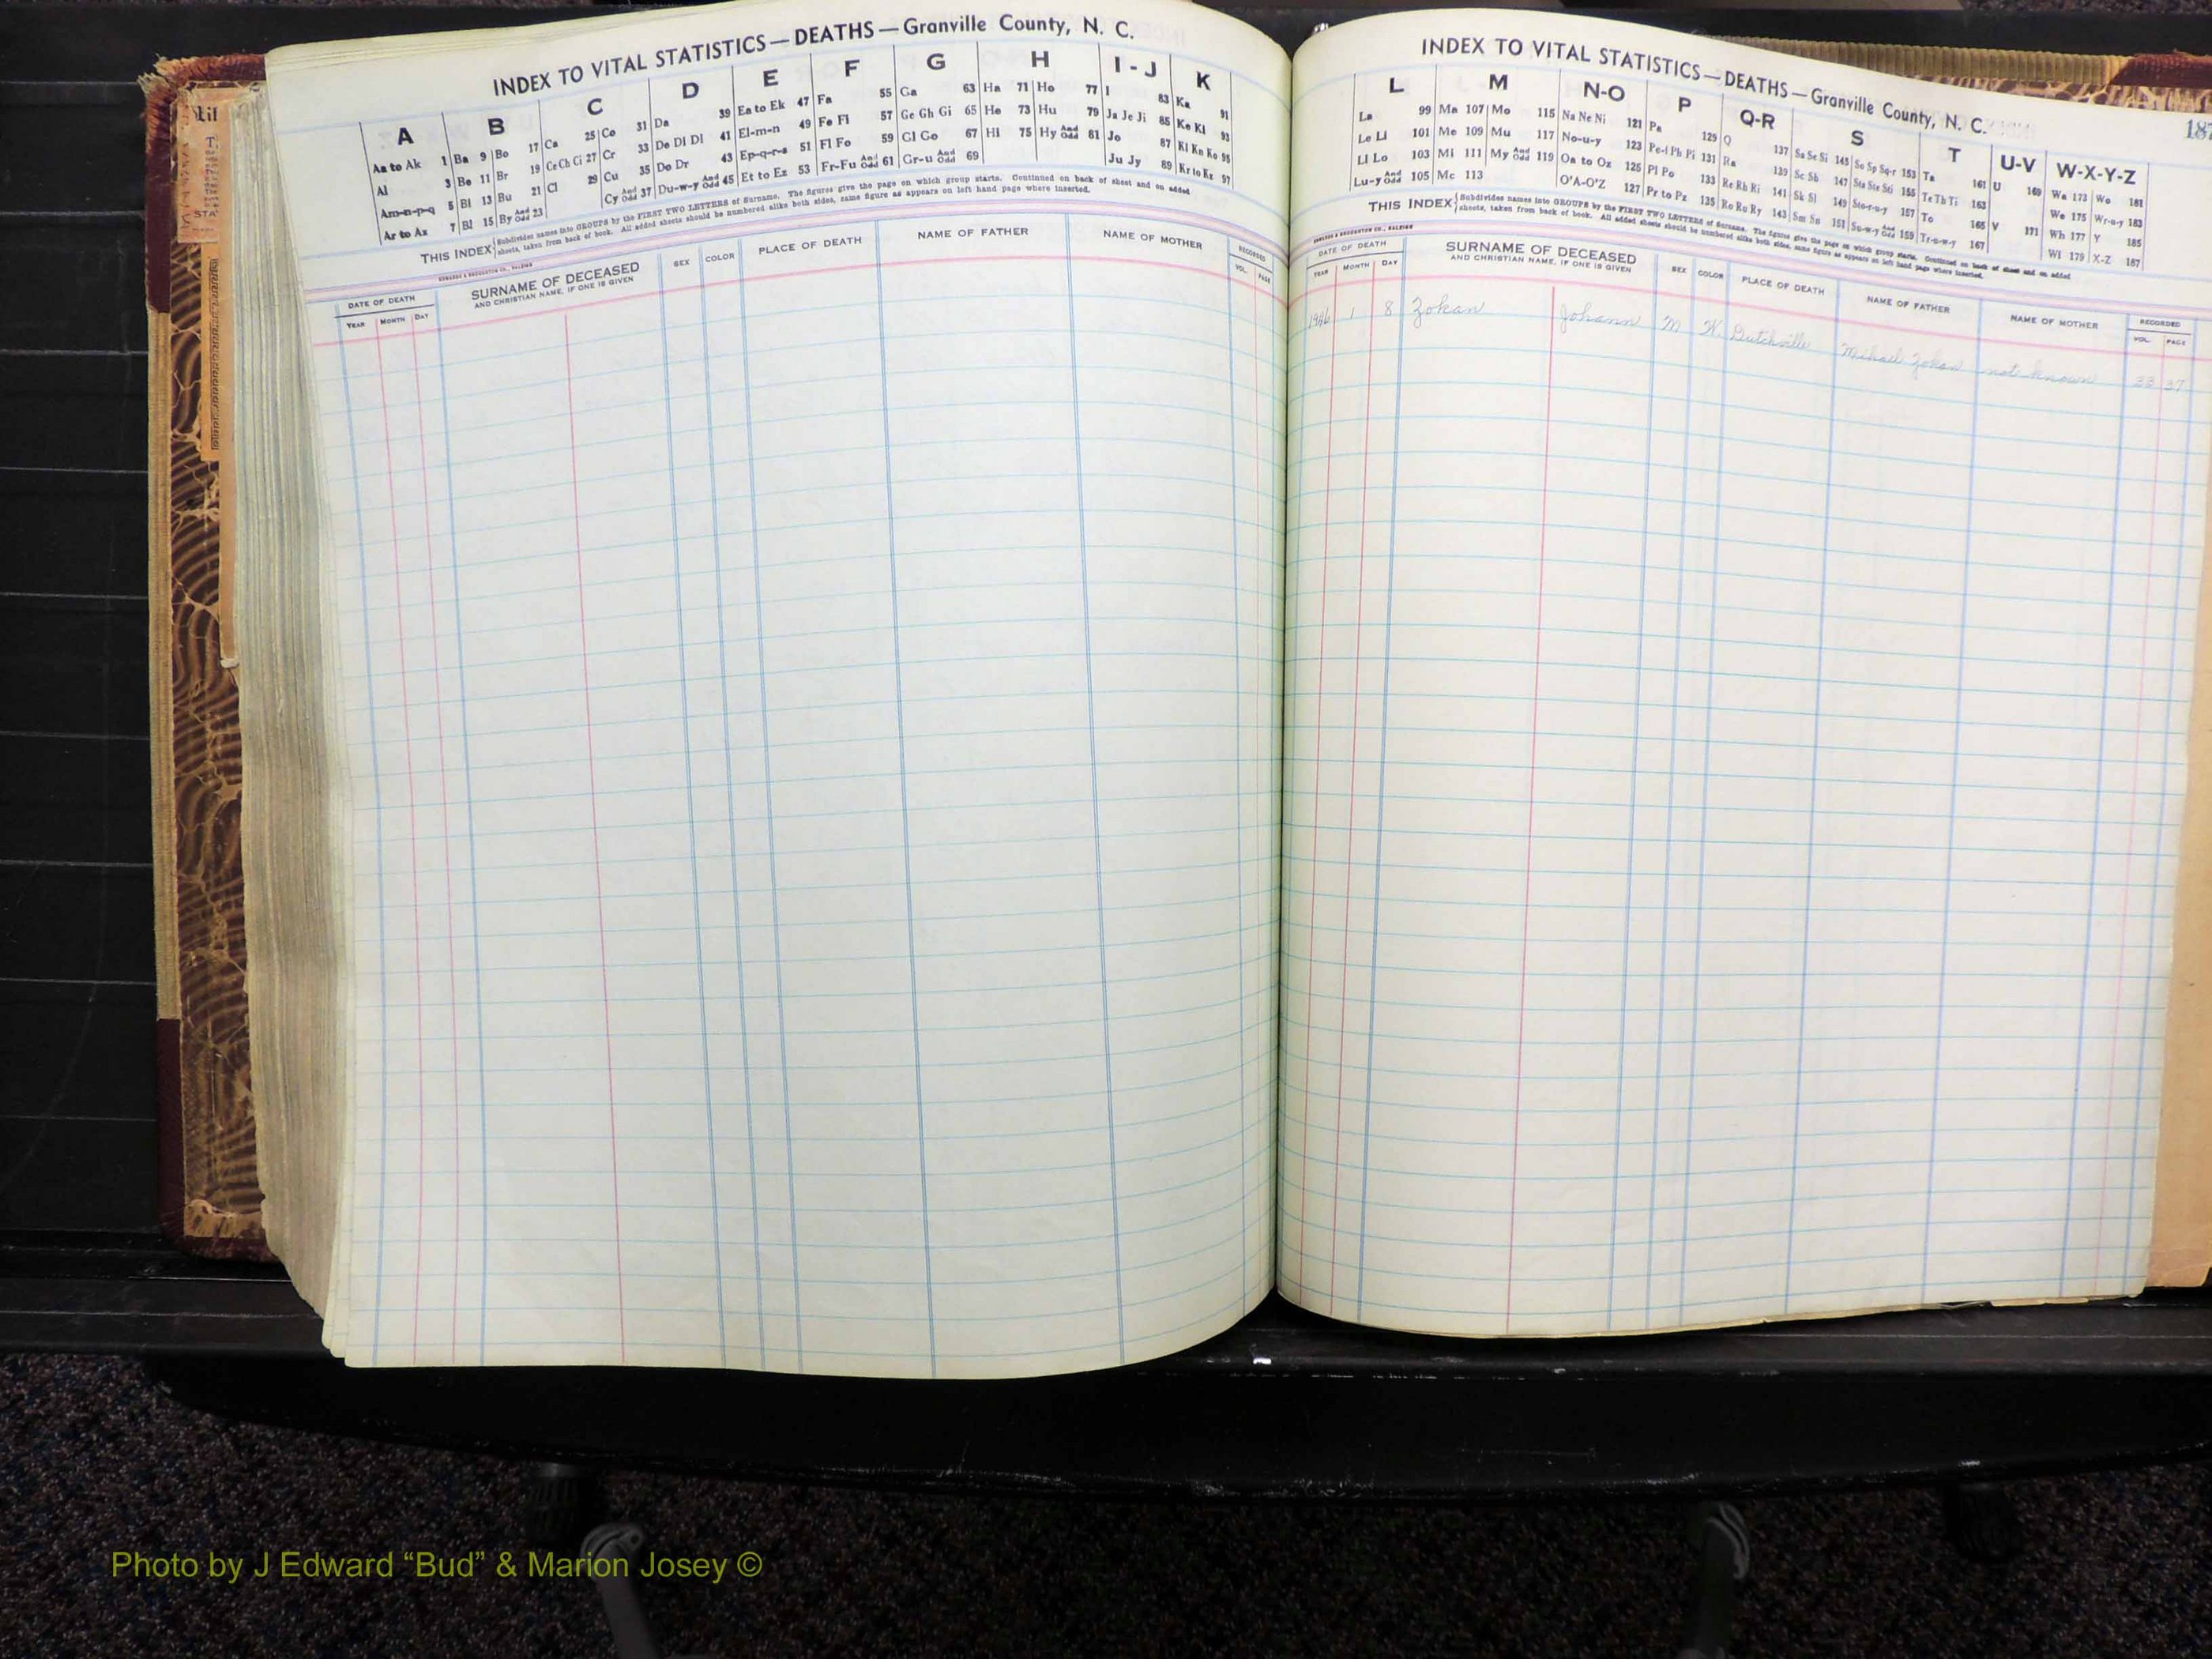 INDEX TO VITAL STATISTICS — DEATHS — Granville County, N. C.
A B C D E F G H I - J K
Aa to Ak 1 Ba 9 Bo 17 Ca 25 Co 31 Da 39 Ea to Ek 47 Fa 55 Ga 63 Ha 71 Ho 77 I 83 Ka 91
Al 3 Be 11 Br 19 Ce Ch Ci 27 Cr 33 De Di Dl 41 El-m-n 49 Fe Fi 57 Ge Gh Gi 65 He 73 Hu 79 Ja Je Ji 85 Ke Ki 93
Am-n-p-q 5 Bi 13 Bu 21 Cl 29 Cu 35 Do Dr 43 Ep-q-r-s 51 Fl Fo 59 Gl Go 67 Hi 75 Hy And Odd 81 Jo 87 Kl Kn Ko 95
Ar to Az 7 Bl 15 By And Odd 23 Cy And Odd 37 Du-w-y And Odd 45 Et to Ez 53 Fr-Fu And Odd 61 Gr-u And Odd 69 Ju Jy 89 Kr to Kz 97
THIS INDEX Subdivides names into GROUPS by the FIRST TWO LETTERS of Surname. The figures give the page on which group starts. Continued on back of sheet and on added
sheets, taken from back of book. All added sheets should be numbered alike both sides, same figure as appears on left hand page where inserted.
EDWARDS & BROUGHTON CO., RALEIGH
DATE OF DEATH SURNAME OF DECEASED SEX COLOR PLACE OF DEATH NAME OF FATHER NAME OF MOTHER RECORDED
YEAR MONTH DAY AND CHRISTIAN NAME, IF ONE IS GIVEN VOL. PAGE
INDEX TO VITAL STATISTICS — DEATHS — Granville County, N. C.
187
L M N-O P Q-R S T U-V W-X-Y-Z
La 99 Ma 107 Mo 115 Na Ne Ni 121 Pa 129 Q 137 Sa Se Si 145 So Sp Sq-r 153 Ta 161 U 169 Wa 173 Wo 181
Le Li 101 Me 109 Mu 117 No-u-y 123 Pe-i Ph Pi 131 Ra 139 Sc Sh 147 Sta Ste Sti 155 Te Th Ti 163 We 175 Wr-u-y 183
Ll Lo 103 Mi 111 My And Odd 119 Oa to Oz 125 Pl Po 133 Re Rh Ri 141 Sk Sl 149 Sto-r-u-y 157 To 165 V 171 Wh 177 Y 185
Lu-y And Odd 105 Mc 113 O'A-O'Z 127 Pr to Pz 135 Ro Ru Ry 143 Sm Sn 151 Su-w-y And Odd 159 Tr-u-w-y 167 Wi 179 X-Z 187
THIS INDEX Subdivides names into GROUPS by the FIRST TWO LETTERS of Surname. The figures give the page on which group starts. Continued on back of sheet and on added
sheets, taken from back of book. All added sheets should be numbered alike both sides, same figure as appears on left hand page where inserted.
EDWARDS & BROUGHTON CO., RALEIGH
DATE OF DEATH SURNAME OF DECEASED SEX COLOR PLACE OF DEATH NAME OF FATHER NAME OF MOTHER RECORDED
YEAR MONTH DAY AND CHRISTIAN NAME, IF ONE IS GIVEN VOL. PAGE
1946 1 8 Zokan Johann M W. Dutchville Michael Zokan not known 33 37
Photo by J Edward “Bud” & Marion Josey ©